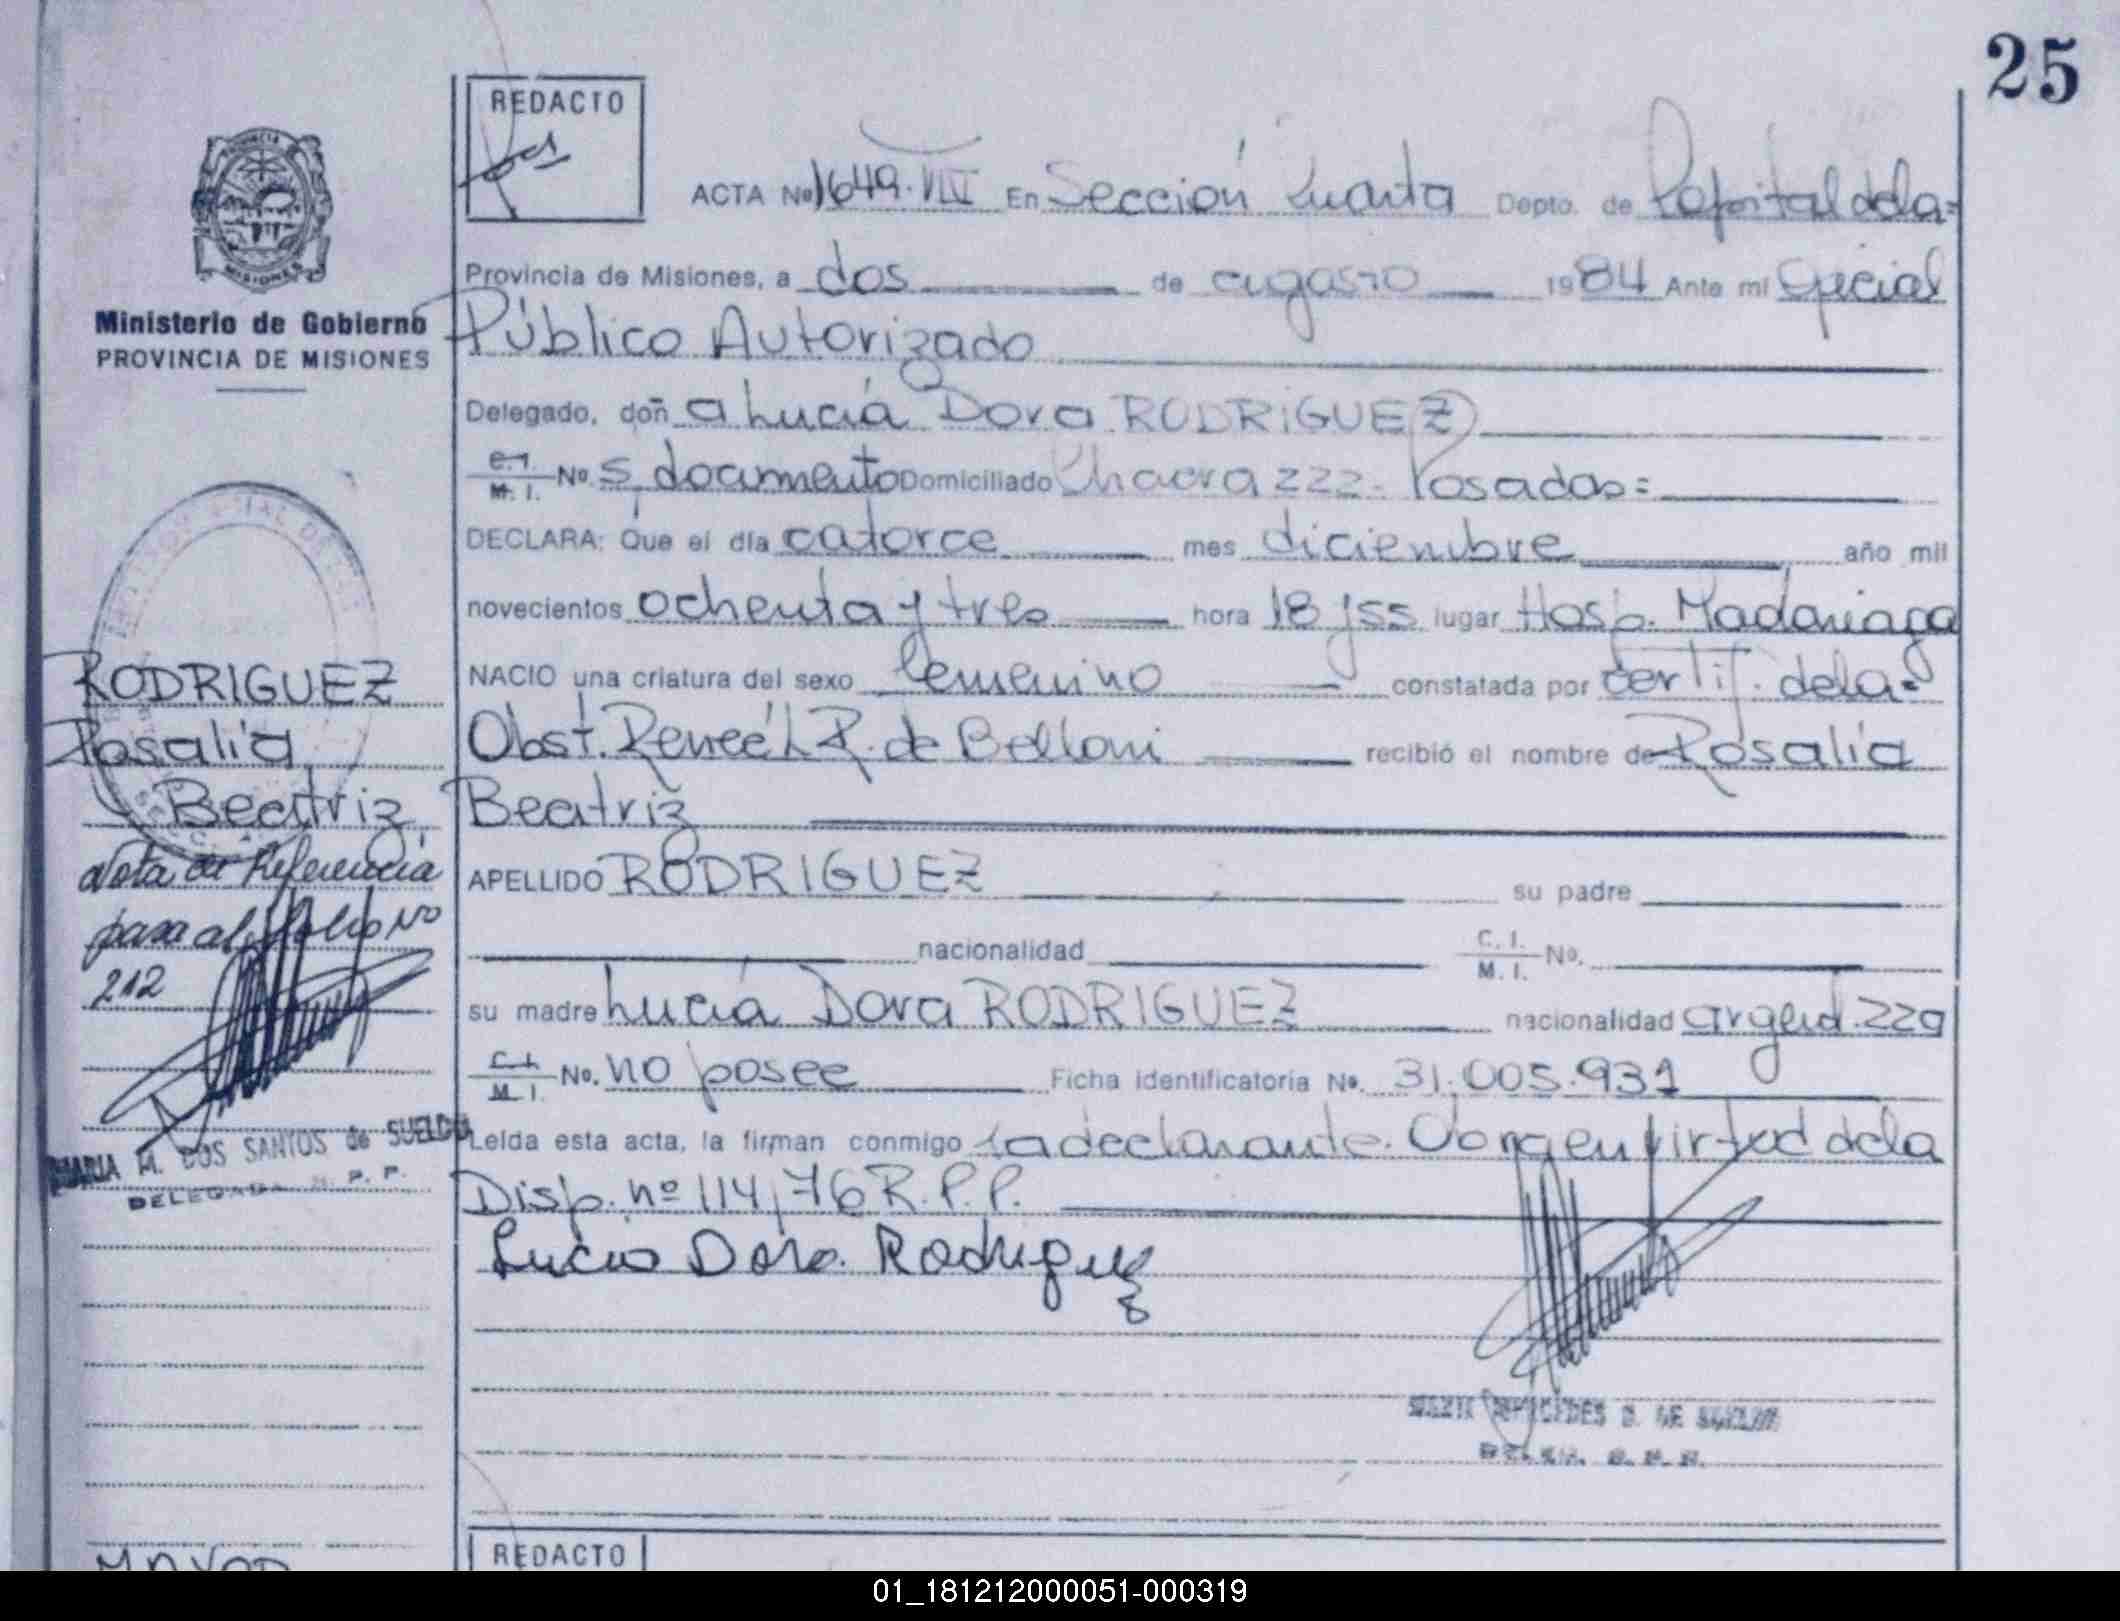 25
REDACTO
ACTA No 1649. VIII En Sección Cuarta Depto. de Capital dela=
Provincia de Misiones, a dos de agosto 1984 Ante mi Oficial
Público Autorizado
Delegado, doñ a Lucía Dora RODRIGUEZ
C.I. M. I. No. s/documento Domiciliado Chacra 222- Posadas=
DECLARA: Que el día catorce mes diciembre año mil
novecientos ochenta y tres hora 18 y 55 lugar Hosp. Madariaga
NACIO una criatura del sexo femenino constatada por certif. dela=
Obst. Reneé L R. de Belloni recibió el nombre de Rosalia
Beatriz
APELLIDO RODRIGUEZ su padre
nacionalidad C. I. M. I. No.
su madre Lucía Dora RODRIGUEZ nacionalidad argent. 22a
C.I. M. I. No. no posee Ficha identificatoria No. 31.005.931
Leída esta acta, la firman conmigo la declarante. Obra en virtud dela
Disp. nº 114/76 R.P.P.
Lucia Dora Rodriguez
DELEG. R.P.P.
PROVINCIA DE
MISIONES
Ministerio de Gobierno
PROVINCIA DE MISIONES
RODRIGUEZ
Rosalia
Beatriz
Nota de Referencia
pasa al folio No
212
MARIA M. DOS SANTOS de SUELDO
DELEGADA R. P. P.
REDACTO
01_181212000051-000319